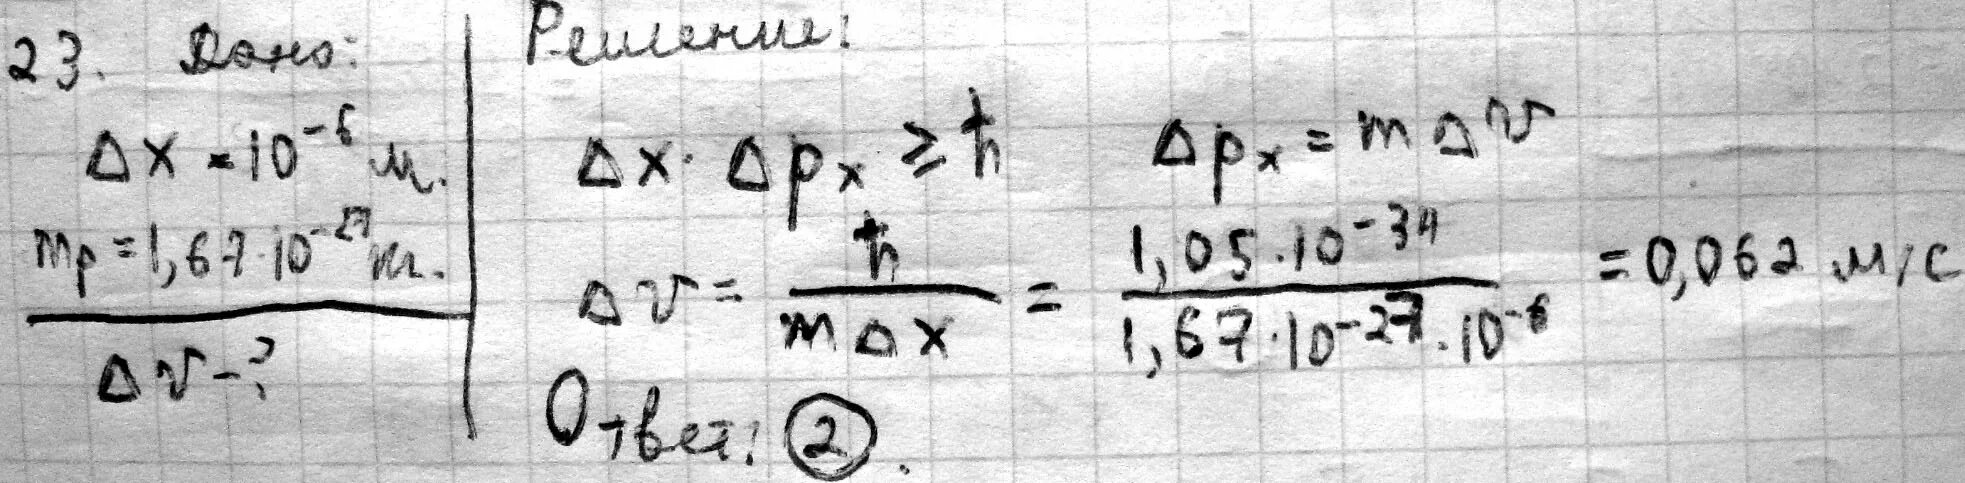 23. Дано:
Δx = 10⁻⁶ м.
mp = 1,67·10⁻²⁷ кг.
Δv - ?
Решение:
Δx · Δpₓ ≥ ħ    Δpₓ = m Δv
Δv = ħ / (m Δx) = 1,05·10⁻³⁴ / (1,67·10⁻²⁷·10⁻⁶) = 0,062 м/с
Ответ: 2.